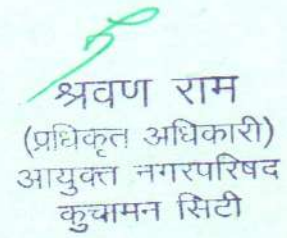 श्रवण राम
(प्रधिकृत अधिकारी)
आयुक्त नगरपरिषद
कुचामन सिटी